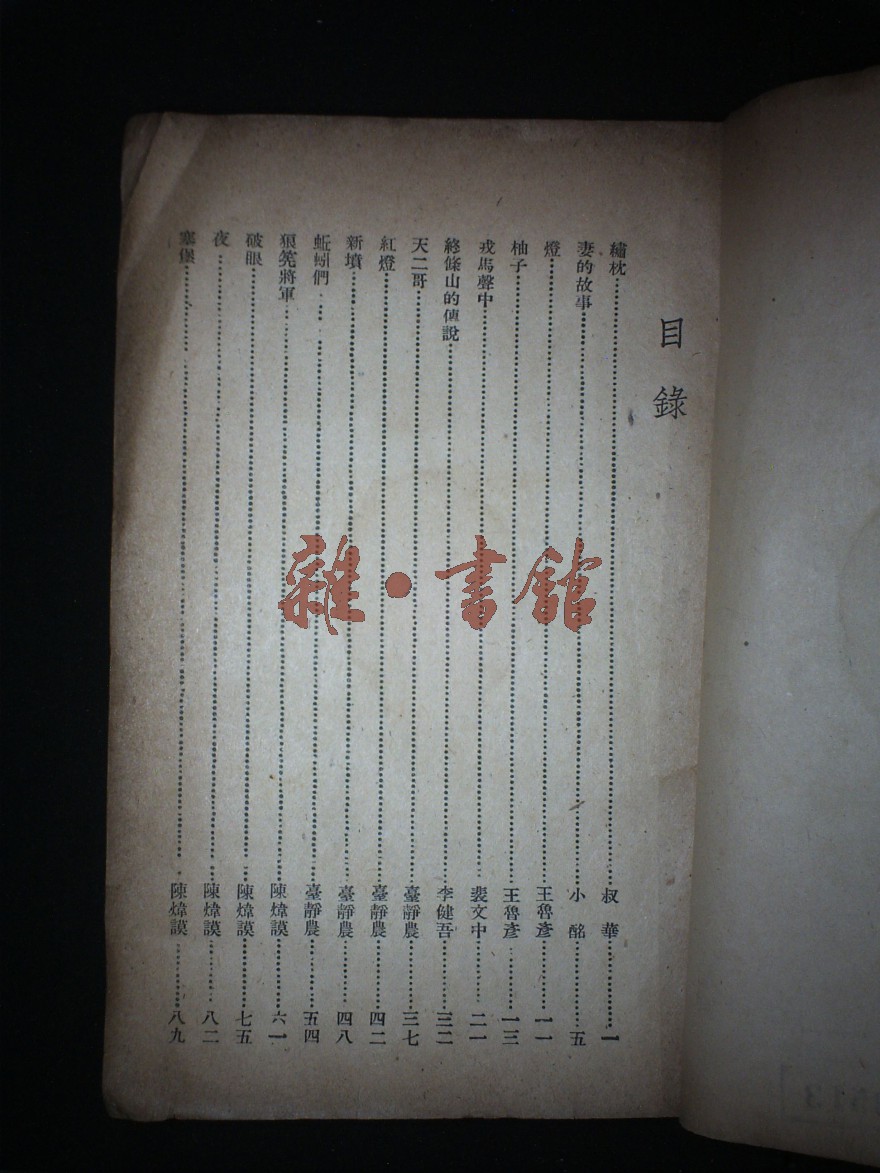 目錄
繡枕……叔華……一
妻的故事……小酩……五
燈……王魯彥……一一
柚子……王魯彥……一三
戎馬聲中……裴文中……二一
終條山的傳說……李健吾……三二
天二哥……臺靜農……三七
紅燈……臺靜農……四二
新墳……臺靜農……四八
蚯蚓們……臺靜農……五四
狼筅將軍……陳煒謨……六一
破眼……陳煒謨……七五
夜……陳煒謨……八二
寨堡……陳煒謨……八九
雜·書館